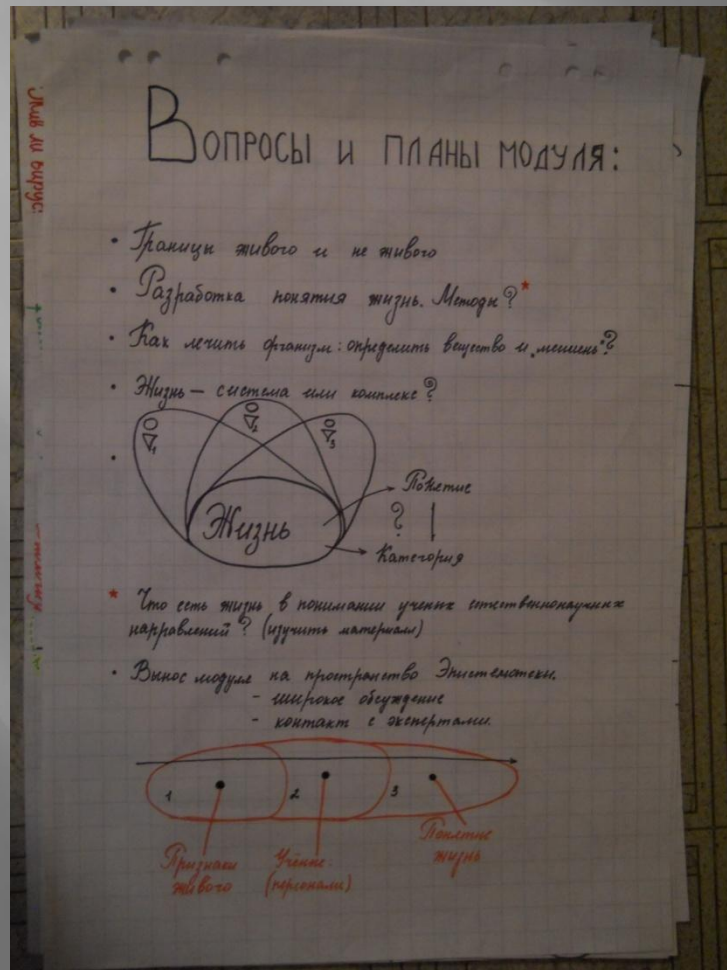 Жив ли вирус:
Вопросы и планы модуля:
• Границы живого и не живого
• Разработка понятия жизнь. Методы?*
• Как лечить организм: определить вещество и „мишень"?
• Жизнь — система или комплекс?
1
2
3
•
Жизнь
Понятие
?
Категория
* Что есть жизнь в понимании ученых естественнонаучных
направлений? (изучить материалы)
• Вынос модуля на пространство Эпистематеки.
- широкое обсуждение
- контакт с экспертами.
1 2 3
Признаки
живого
Учёные:
(персонали)
Понятие
жизнь